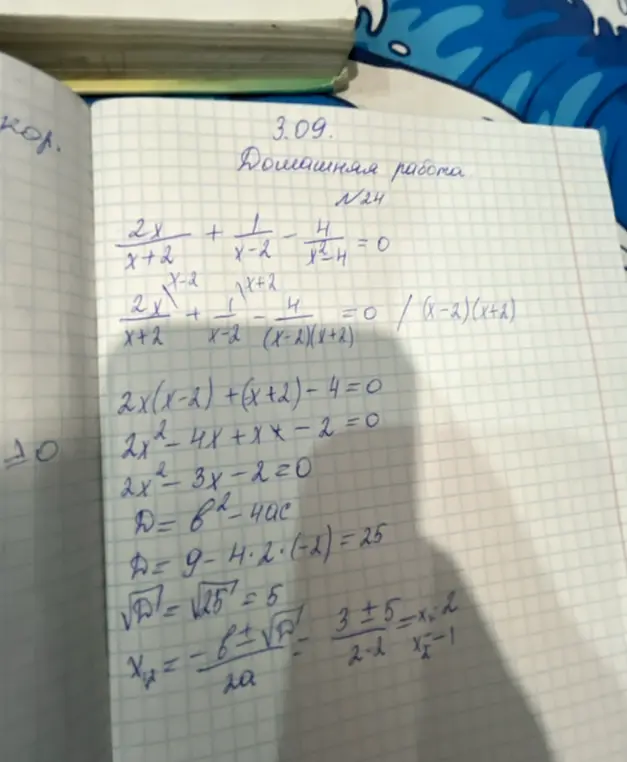 кор.
≥0
3.09.
Домашняя работа
№24
2x/(x+2) + 1/(x-2) - 4/(x²-4) = 0
2x\x-2/(x+2) + 1\x+2/(x-2) - 4/((x-2)(x+2)) = 0 / (x-2)(x+2)
2x(x-2) + (x+2) - 4 = 0
2x² - 4x + x - 2 = 0
2x² - 3x - 2 = 0
D = b² - 4ac
D = 9 - 4·2·(-2) = 25
√D = √25 = 5
x₁,₂ = (-b±√D)/2a = (3±5)/(2·2) = x₁=2
x₂=-1